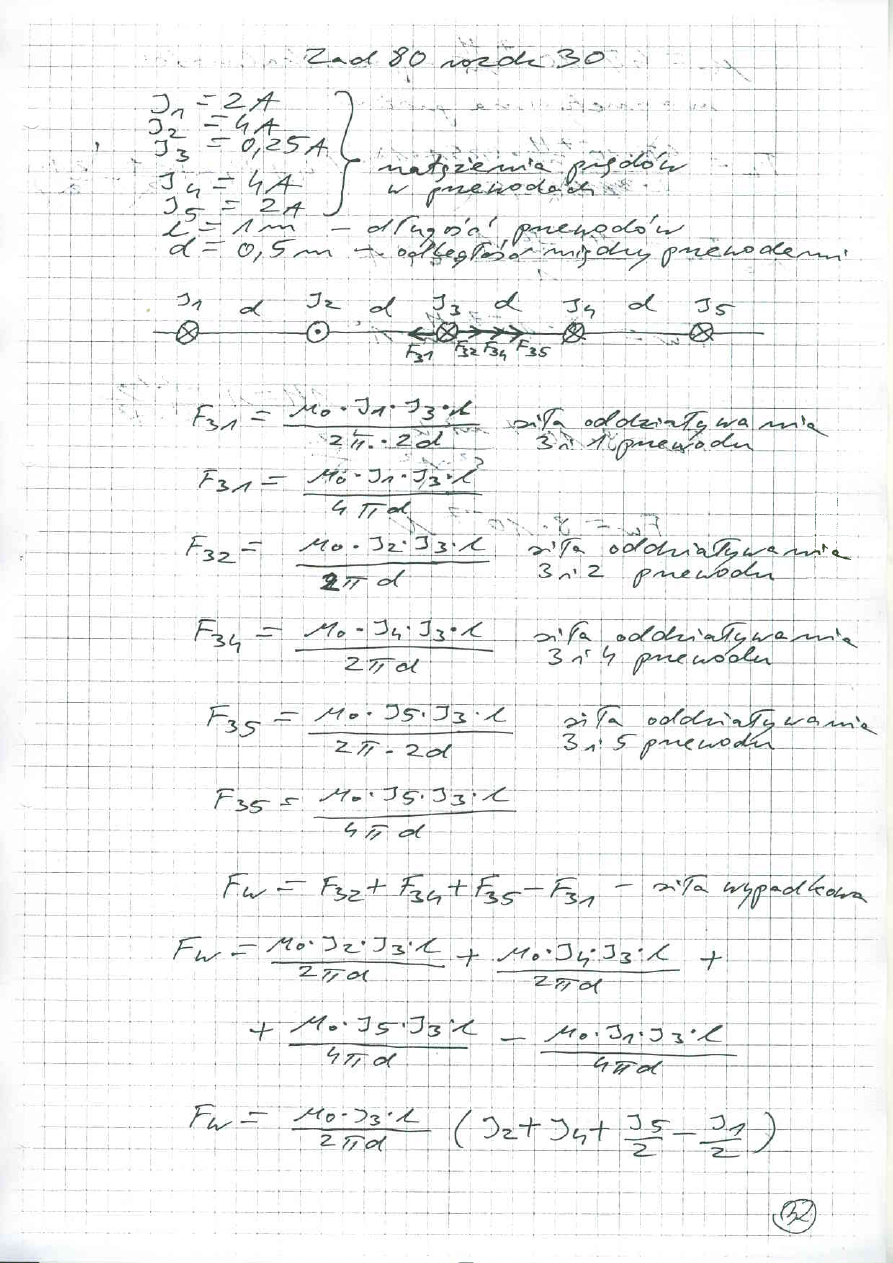 Zad 80 rozdz 30
I₁ = 2A
I₂ = 4A
I₃ = 0,25A
I₄ = 4A
I₅ = 2A
natężenia prądów
w przewodach
l = 1m – długość przewodów
d = 0,5m – odległość między przewodami
I₁ d I₂ d I₃ d I₄ d I₅
F₃₁ F₃₂ F₃₄ F₃₅
F₃₁ = μ₀·I₁·I₃·l / 2π·2d siła oddziaływania
3 i 1 przewodu
F₃₁ = μ₀·I₁·I₃·l / 4πd
F₃₂ = μ₀·I₂·I₃·l / 2πd siła oddziaływania
3 i 2 przewodu
F₃₄ = μ₀·I₄·I₃·l / 2πd siła oddziaływania
3 i 4 przewodu
F₃₅ = μ₀·I₅·I₃·l / 2π·2d siła oddziaływania
3 i 5 przewodu
F₃₅ = μ₀·I₅·I₃·l / 4πd
Fw = F₃₂ + F₃₄ + F₃₅ – F₃₁ – siła wypadkowa
Fw = μ₀·I₂·I₃·l / 2πd + μ₀·I₄·I₃·l / 2πd +
+ μ₀·I₅·I₃·l / 4πd – μ₀·I₁·I₃·l / 4πd
Fw = μ₀·I₃·l / 2πd (I₂ + I₄ + I₅/2 – I₁/2)
32